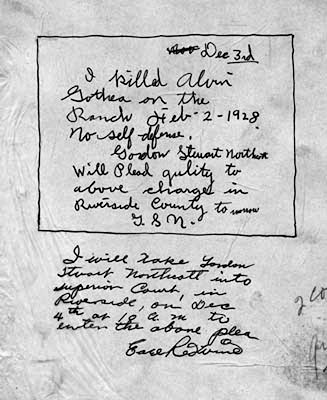 Dec 3rd
I killed Alvin
Gothea on the
Ranch Feb-2-1928
No self defense.
Gordon Stuart Northcott
Will Plead guilty to
above charges in
Riverside County to morrow
G S N.
I will take Gordon
Stuart Northcott into
Superior Court, in
Riverside, on Dec
4th at 10 A.M. to
enter the above plea